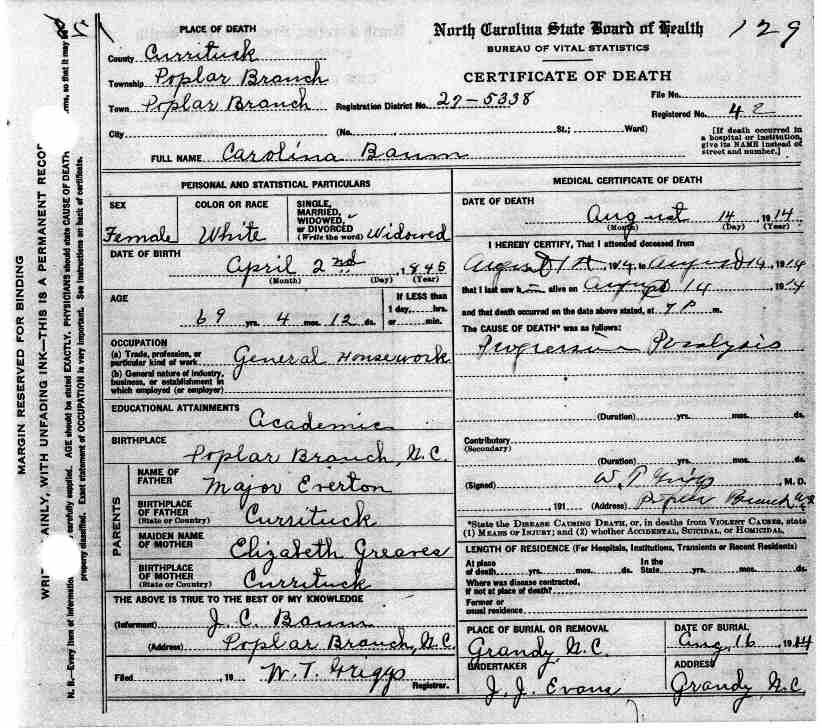 129
PLACE OF DEATH
County Currituck
Township Poplar Branch
Town Poplar Branch
Registration District No. 27-5338
City
(No. St.; Ward)
FULL NAME Carolina Baum
North Carolina State Board of Health
BUREAU OF VITAL STATISTICS
CERTIFICATE OF DEATH
File No.
Registered No. 42
[If death occurred in
a hospital or institution,
give its NAME instead of
street and number.]
MARGIN RESERVED FOR BINDING
AINLY, WITH UNFADING INK—THIS IS A PERMANENT RECO
N. B.—Every item of information carefully supplied. AGE should be stated EXACTLY. PHYSICIANS should state CAUSE OF DEATH, so that it may
properly classified. Exact statement of OCCUPATION is very important. See instructions on back of certificate.
PERSONAL AND STATISTICAL PARTICULARS
SEX
Female
COLOR OR RACE
White
SINGLE,
MARRIED,
WIDOWED,
or DIVORCED
(Write the word) Widowed
DATE OF BIRTH
April 2nd, 1845
(Month) (Day) (Year)
AGE
69 yrs. 4 mos. 12 ds.
If LESS than
1 day, hrs.
or min.
OCCUPATION
(a) Trade, profession, or
particular kind of work General Housework
(b) General nature of industry,
business, or establishment in
which employed (or employer)
EDUCATIONAL ATTAINMENTS
Academic
BIRTHPLACE
Poplar Branch, N.C.
PARENTS
NAME OF
FATHER Major Everton
BIRTHPLACE
OF FATHER
(State or Country) Currituck
MAIDEN NAME
OF MOTHER Elizabeth Greaves
BIRTHPLACE
OF MOTHER
(State or Country) Currituck
THE ABOVE IS TRUE TO THE BEST OF MY KNOWLEDGE
(Informant) J. C. Baum
(Address) Poplar Branch, N.C.
Filed , 19 W. T. Griggs
Registrar.
MEDICAL CERTIFICATE OF DEATH
DATE OF DEATH
August 14, 1914
(Month) (Day) (Year)
I HEREBY CERTIFY, That I attended deceased from
August 1st, 1914, to August 14, 1914
that I last saw h alive on August 14, 1914
and that death occurred on the date above stated, at 7 P. m.
The CAUSE OF DEATH* was as follows:
Progressive Paralysis
(Duration) yrs. mos. ds.
Contributory
(Secondary)
(Duration) yrs. mos. ds.
(Signed) W. T. Griggs M. D.
, 191 (Address) Poplar Branch N.C.
*State the DISEASE CAUSING DEATH, or, in deaths from VIOLENT CAUSES, state
(1) MEANS OF INJURY; and (2) whether ACCIDENTAL, SUICIDAL, or HOMICIDAL.
LENGTH OF RESIDENCE (For Hospitals, Institutions, Transients or Recent Residents)
At place
of death yrs. mos. ds.
In the
State yrs. mos. ds.
Where was disease contracted,
if not at place of death?
Former or
usual residence
PLACE OF BURIAL OR REMOVAL
Grandy, N.C.
DATE OF BURIAL
Aug 16, 1914
UNDERTAKER
J. J. Evans
ADDRESS
Grandy, N.C.